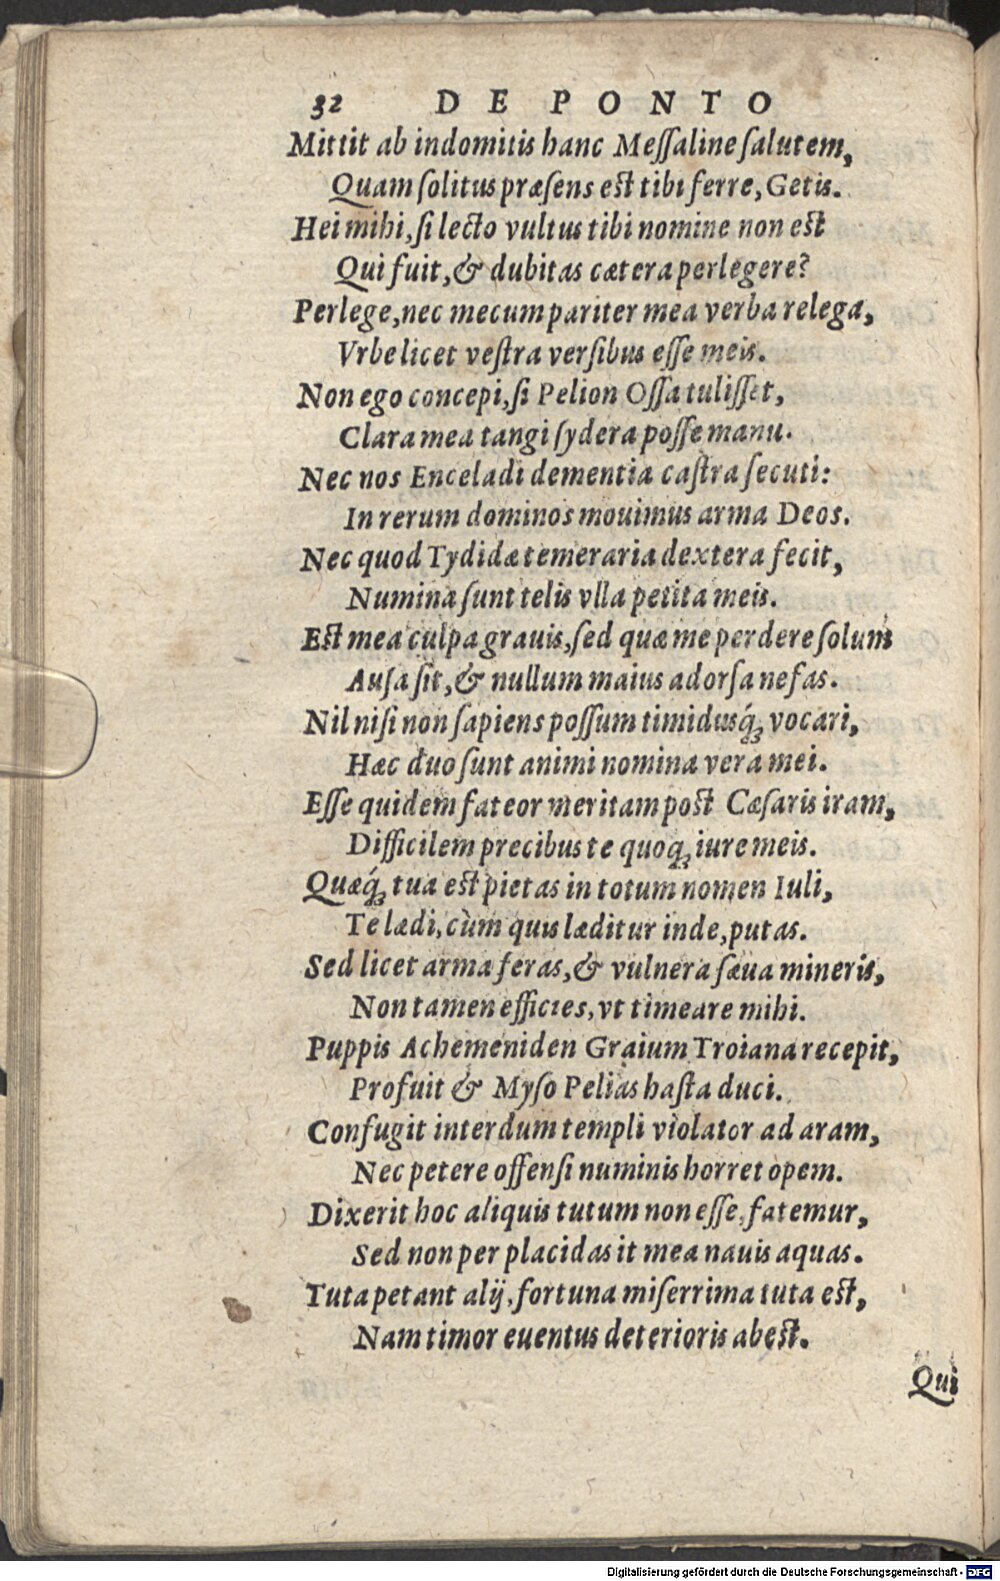 32 DE PONTO
Mittit ab indomitis hanc Meſſaline ſalutem,
Quam ſolitus præſens eſt tibi ferre, Getis.
Hei mihi, ſi lecto vultus tibi nomine non eſt
Qui fuit, & dubitas cætera perlegere?
Perlege, nec mecum pariter mea verba relega,
Vrbe licet veſtra verſibus eſſe meis.
Non ego concepi, ſi Pelion Oſſa tuliſſet,
Clara mea tangi ſydera poſſe manu.
Nec nos Enceladi dementia caſtra ſecuti:
In rerum dominos mouimus arma Deos.
Nec quod Tydidæ temeraria dextera fecit,
Numina ſunt telis vlla petita meis.
Eſt mea culpa grauis, ſed quæ me perdere ſolum
Auſa ſit, & nullum maius adorſa nefas.
Nil niſi non ſapiens poſſum timidusq́ꝫ vocari,
Hæc duo ſunt animi nomina vera mei.
Eſſe quidem fateor meritam poſt Cæſaris iram,
Difficilem precibus te quoqꝫ iure meis.
Quæq́ꝫ tua eſt pietas in totum nomen Iuli,
Te lædi, cùm quis læditur inde, putas.
Sed licet arma feras, & vulnera ſæua mineris,
Non tamen efficies, vt timeare mihi.
Puppis Achemeniden Graium Troiana recepit,
Profuit & Myſo Pelias haſta duci.
Confugit interdum templi violator ad aram,
Nec petere offenſi numinis horret opem.
Dixerit hoc aliquis tutum non eſſe, fatemur,
Sed non per placidas it mea nauis aquas.
Tuta petant alij, fortuna miſerrima tuta eſt,
Nam timor euentus deterioris abeſt.
Qui
Digitalisierung gefördert durch die Deutsche Forschungsgemeinschaft - DFG